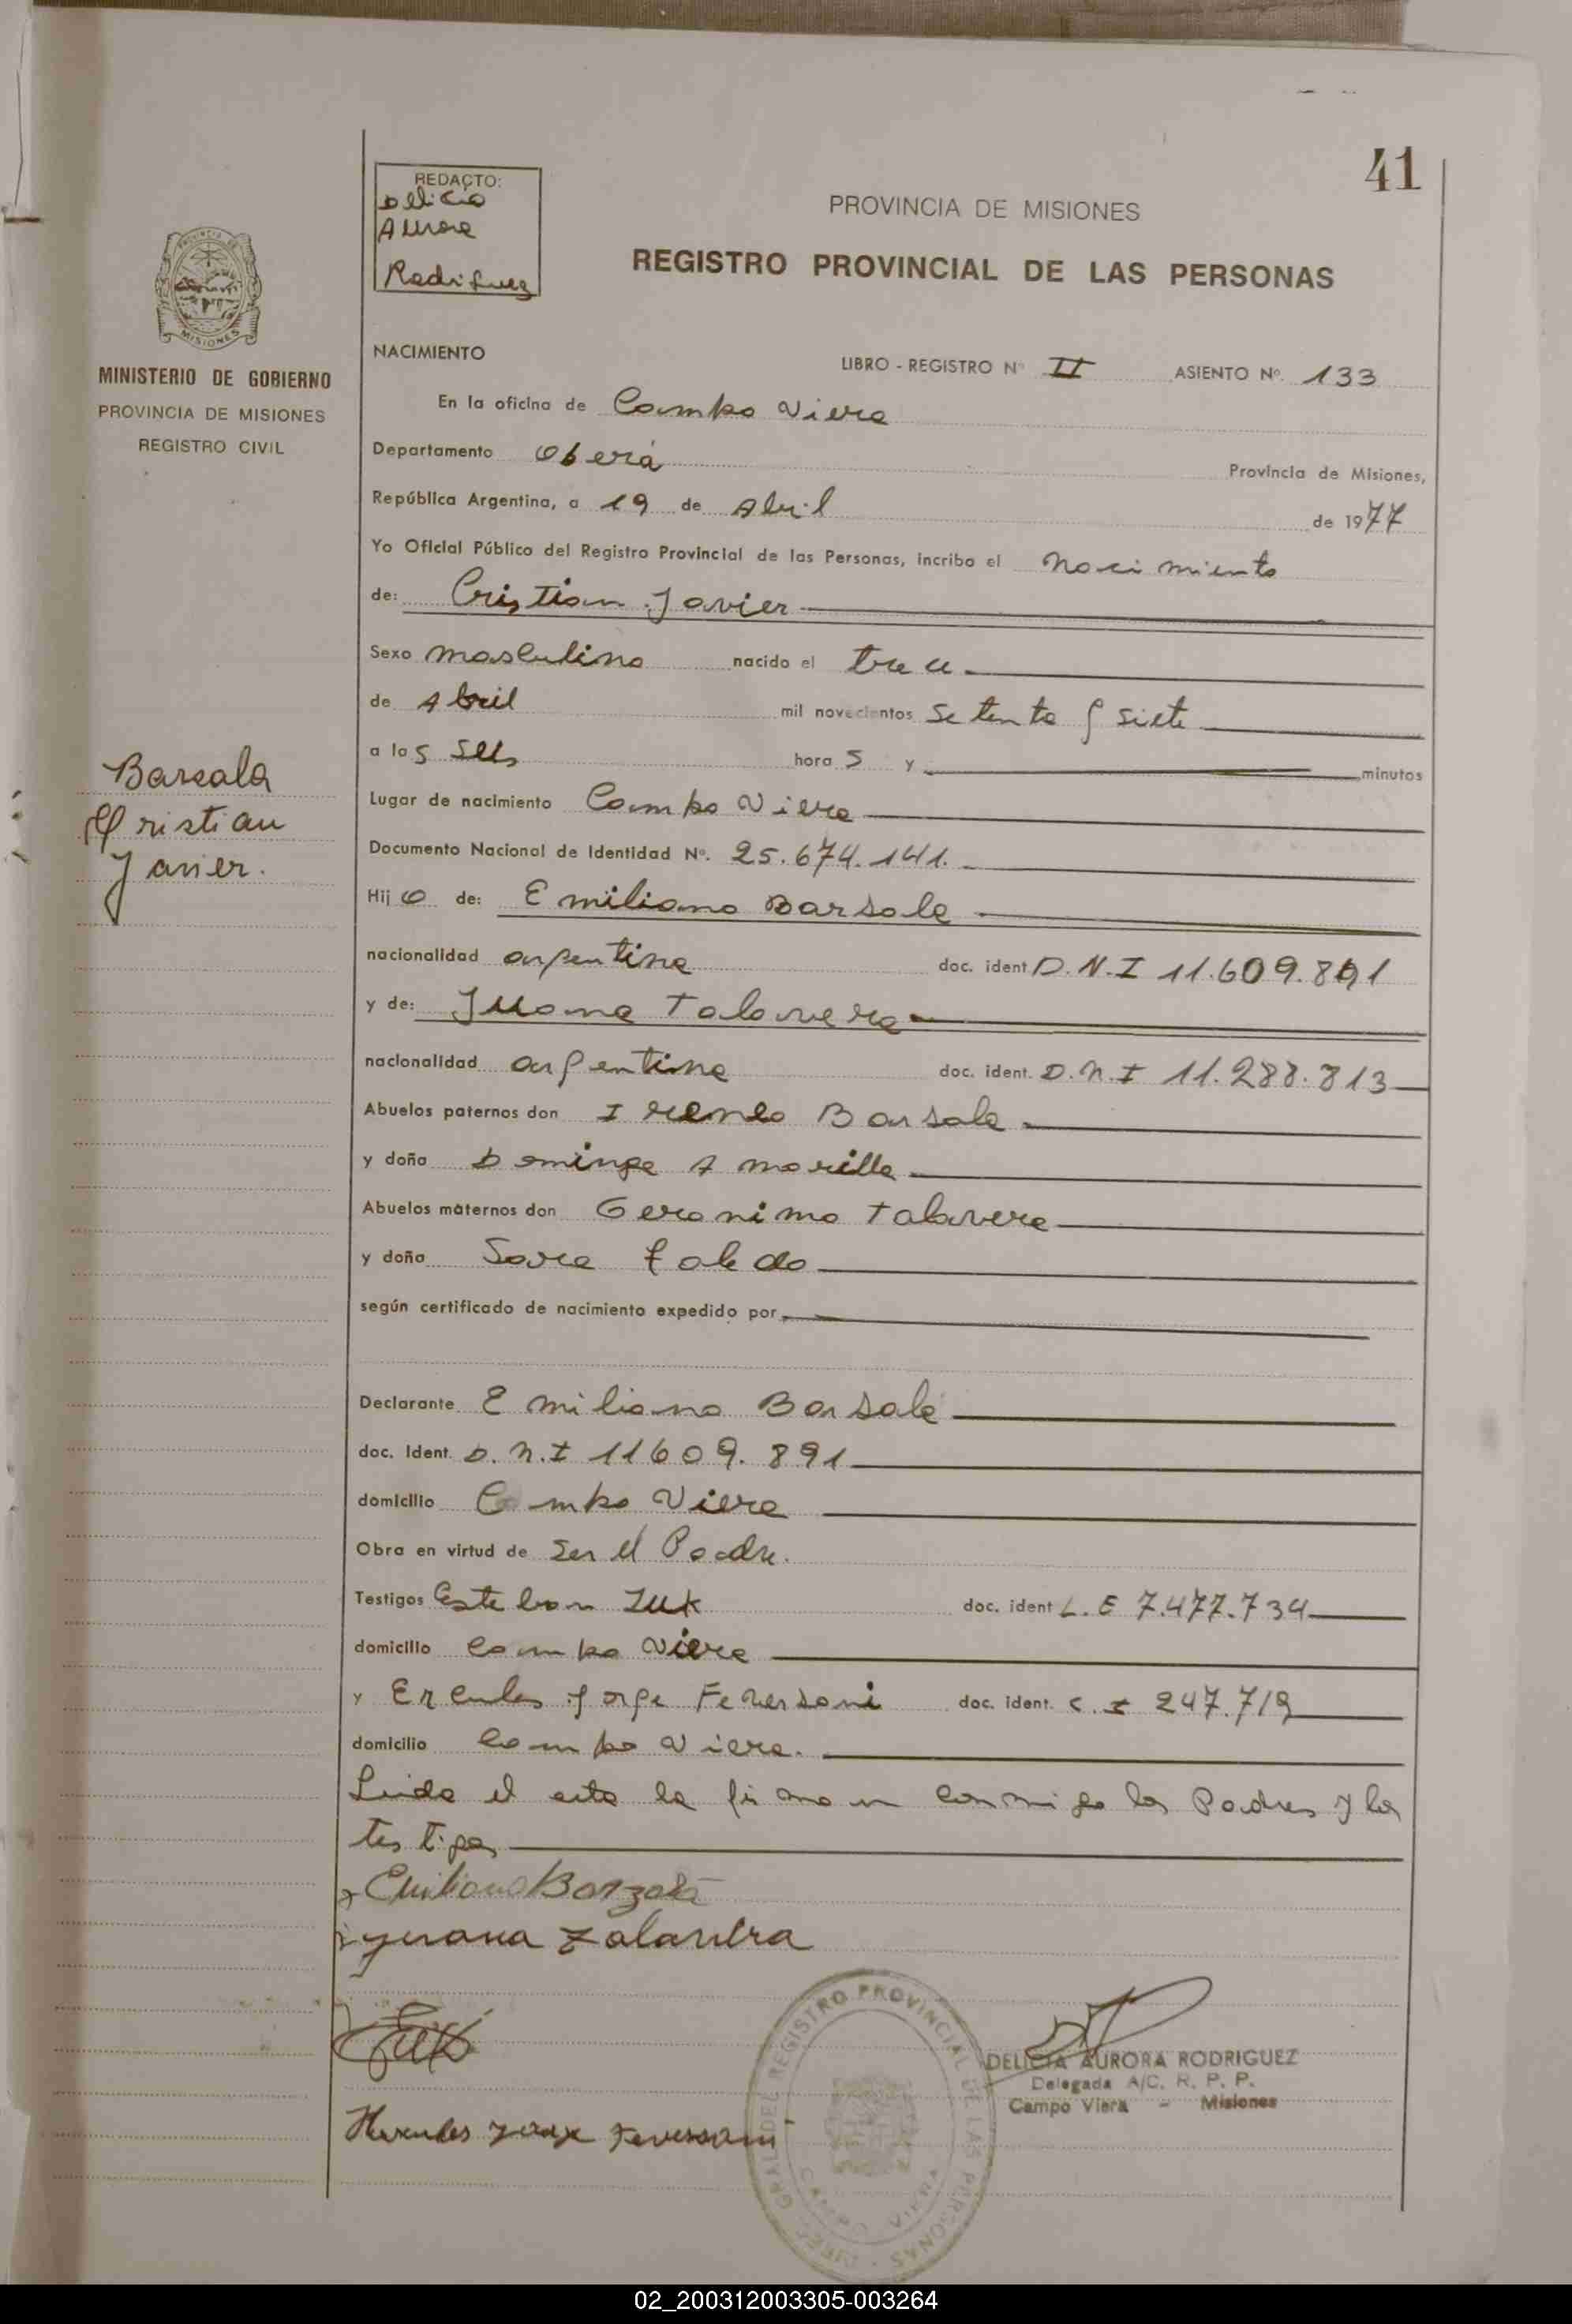 41
REDACTO:
Delicia
Aurora
Rodriguez
PROVINCIA DE MISIONES
REGISTRO PROVINCIAL DE LAS PERSONAS
PROVINCIA DE
MISIONES
MINISTERIO DE GOBIERNO
PROVINCIA DE MISIONES
REGISTRO CIVIL
NACIMIENTO LIBRO - REGISTRO Nº II ASIENTO Nº. 133
En la oficina de Campo Viera
Departamento Oberá Provincia de Misiones,
República Argentina, a 19 de Abril de 1977
Yo Oficial Público del Registro Provincial de las Personas, incribo el Nacimiento
de: Cristian Javier
Sexo masculino nacido el trece
de Abril mil novecientos setenta y siete
a las seis horas y minutos
Lugar de nacimiento Campo Viera
Documento Nacional de Identidad Nº. 25.674.141.
Hijo de: Emiliano Barsola
nacionalidad argentina doc. ident D.N.I 11.609.891
y de: Juana Talavera
nacionalidad argentina doc. ident. D.N.I 11.288.813
Abuelos paternos don Ireneo Barsola
y doña Dominga Amarilla
Abuelos maternos don Geronimo Talavera
y doña Sara Toledo
según certificado de nacimiento expedido por
Declarante Emiliano Barsola
doc. Ident. D.N.I 11609.891
domicilio Campo Viera
Obra en virtud de ser el Padre.
Testigos Esteban Zuk doc. ident L.E 7.477.734
domicilio Campo Viera
y Ercules Jorge Feversani doc. ident. C.I 247.719
domicilio Campo Viera.
Leida el acta la firman conmigo los Padres y los
testigos
Barsala
Cristian
Javier.
Emiliano Barzola
Juana Talavera
Zuk
Hercules Jorge Feversani
DELICIA AURORA RODRIGUEZ
Delegada A/C. R. P. P.
Campo Viera - Misiones
DIREC. GRAL. DEL REGISTRO PROVINCIAL DE LAS PERSONAS
CAMPO VIERA
02_200312003305-003264